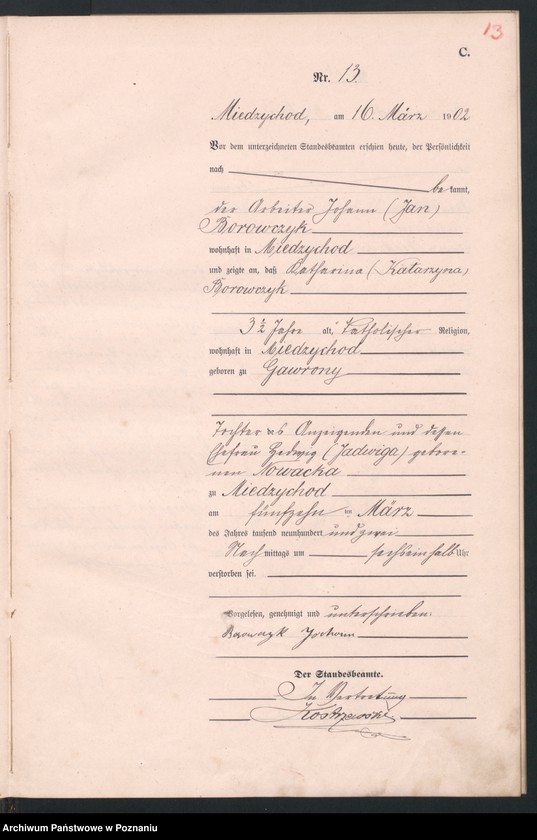 13
C.
Nr. 13.
Miedzychod, am 16. März 1902
Vor dem unterzeichneten Standesbeamten erschien heute, der Persönlichkeit
nach
be kannt,
der Arbeiter Johann (Jan)
Borowczyk
wohnhaft in Miedzychod
und zeigte an, daß Katharina (Katarzyna)
Borowczyk
3 1/2 Jahre alt, katholischer Religion,
wohnhaft in Miedzychod
geboren zu Gawrony
Tochter des Anzeigenden und dessen
Ehefrau Hedwig (Jadwiga) gebore-
nen Nowacka
zu Miedzychod
am fünfzehn ten März
des Jahres tausend neunhundert und zwei
Nach mittags um sechseinhalb Uhr
verstorben sei.
Vorgelesen, genehmigt und unterschrieben:
Borowczyk Johann
Der Standesbeamte.
In Vertretung
Kostrzewski
Archiwum Państwowe w Poznaniu